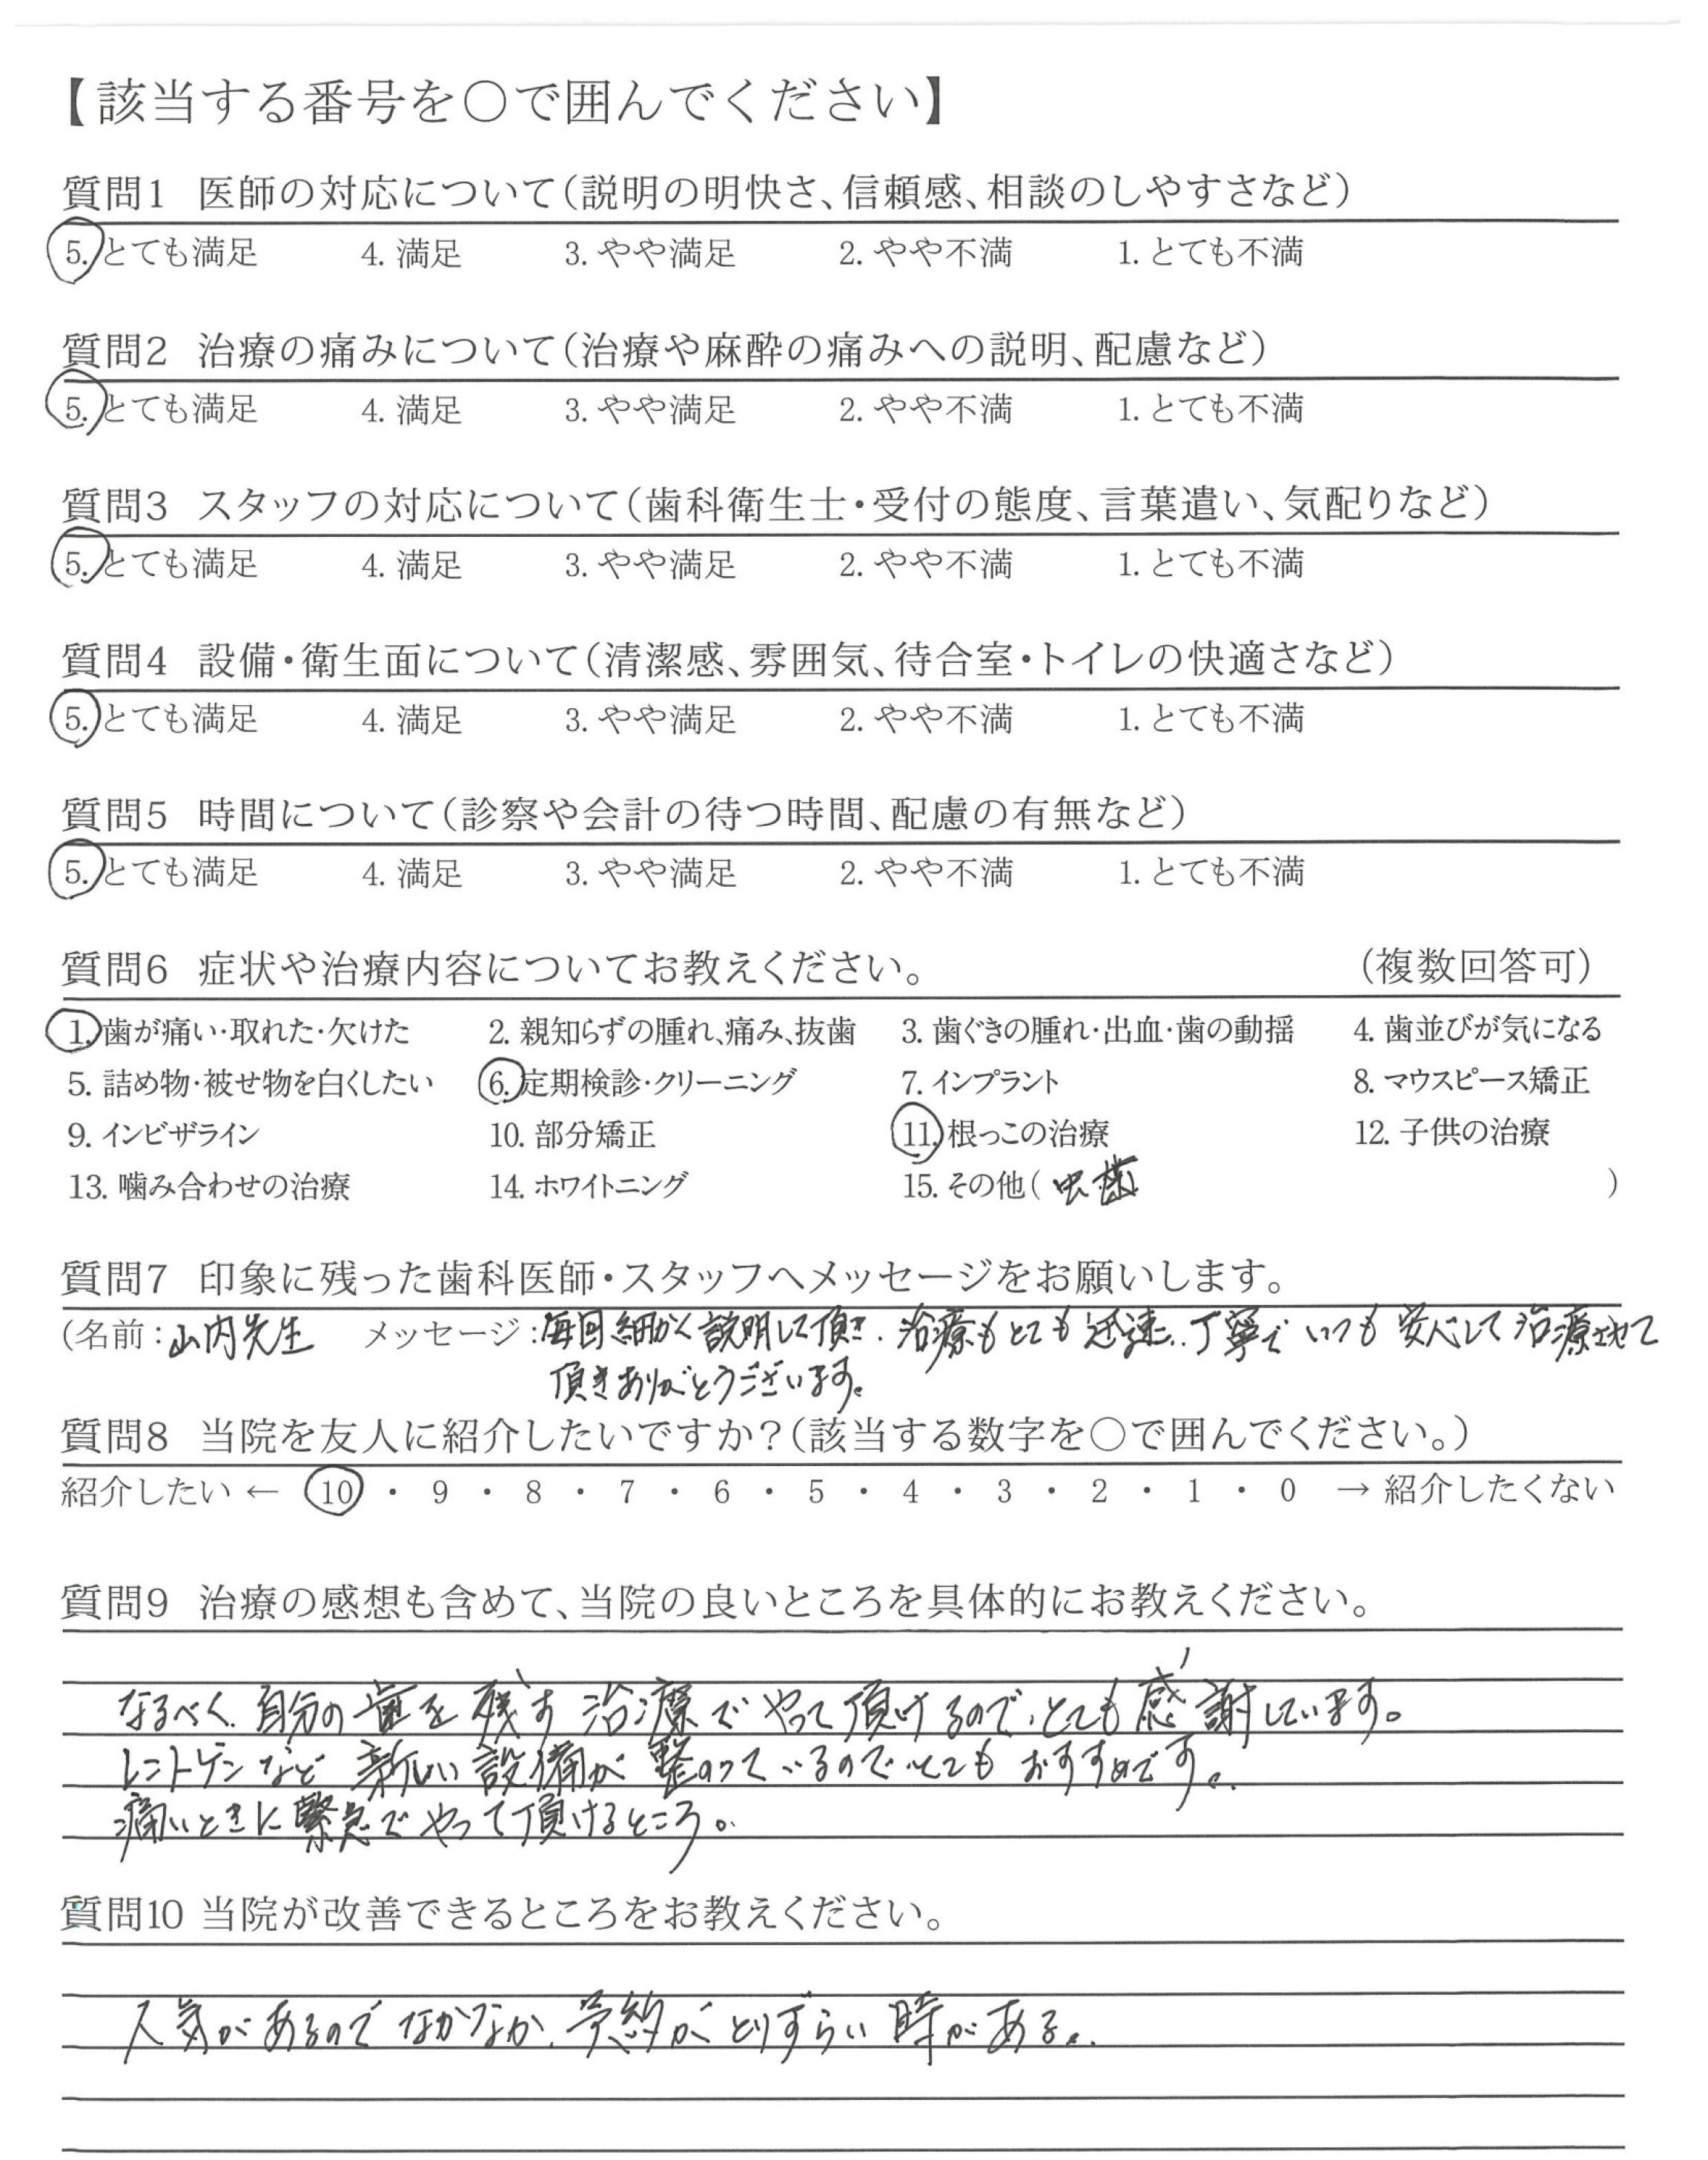 【該当する番号を○で囲んでください】
質問1 医師の対応について(説明の明快さ、信頼感、相談のしやすさなど)
5. とても満足 4. 満足 3. やや満足 2. やや不満 1. とても不満
質問2 治療の痛みについて(治療や麻酔の痛みへの説明、配慮など)
5. とても満足 4. 満足 3. やや満足 2. やや不満 1. とても不満
質問3 スタッフの対応について(歯科衛生士・受付の態度、言葉遣い、気配りなど)
5. とても満足 4. 満足 3. やや満足 2. やや不満 1. とても不満
質問4 設備・衛生面について(清潔感、雰囲気、待合室・トイレの快適さなど)
5. とても満足 4. 満足 3. やや満足 2. やや不満 1. とても不満
質問5 時間について(診察や会計の待つ時間、配慮の有無など)
5. とても満足 4. 満足 3. やや満足 2. やや不満 1. とても不満
質問6 症状や治療内容についてお教えください。 (複数回答可)
1. 歯が痛い・取れた・欠けた 2. 親知らずの腫れ、痛み、抜歯 3. 歯ぐきの腫れ・出血・歯の動揺 4. 歯並びが気になる
5. 詰め物・被せ物を白くしたい 6. 定期検診・クリーニング 7. インプラント 8. マウスピース矯正
9. インビザライン 10. 部分矯正 11. 根っこの治療 12. 子供の治療
13. 噛み合わせの治療 14. ホワイトニング 15. その他( 虫歯 )
質問7 印象に残った歯科医師・スタッフへメッセージをお願いします。
(名前：山内先生 メッセージ：毎回細かく説明して頂き、治療もとても迅速、丁寧でいつも安心して治療させて
頂きありがとうございます。
質問8 当院を友人に紹介したいですか？(該当する数字を○で囲んでください。)
紹介したい ← 10 ・ 9 ・ 8 ・ 7 ・ 6 ・ 5 ・ 4 ・ 3 ・ 2 ・ 1 ・ 0 → 紹介したくない
質問9 治療の感想も含めて、当院の良いところを具体的にお教えください。
なるべく、自分の歯を残す治療でやって頂けるので、とても感謝しています。
レントゲンなど新しい設備が整のっているのでとてもおすすめです。
痛いときに緊急でやって頂けるところ。
質問10 当院が改善できるところをお教えください。
人気があるのでなかなか、予約がとりずらい時がある。